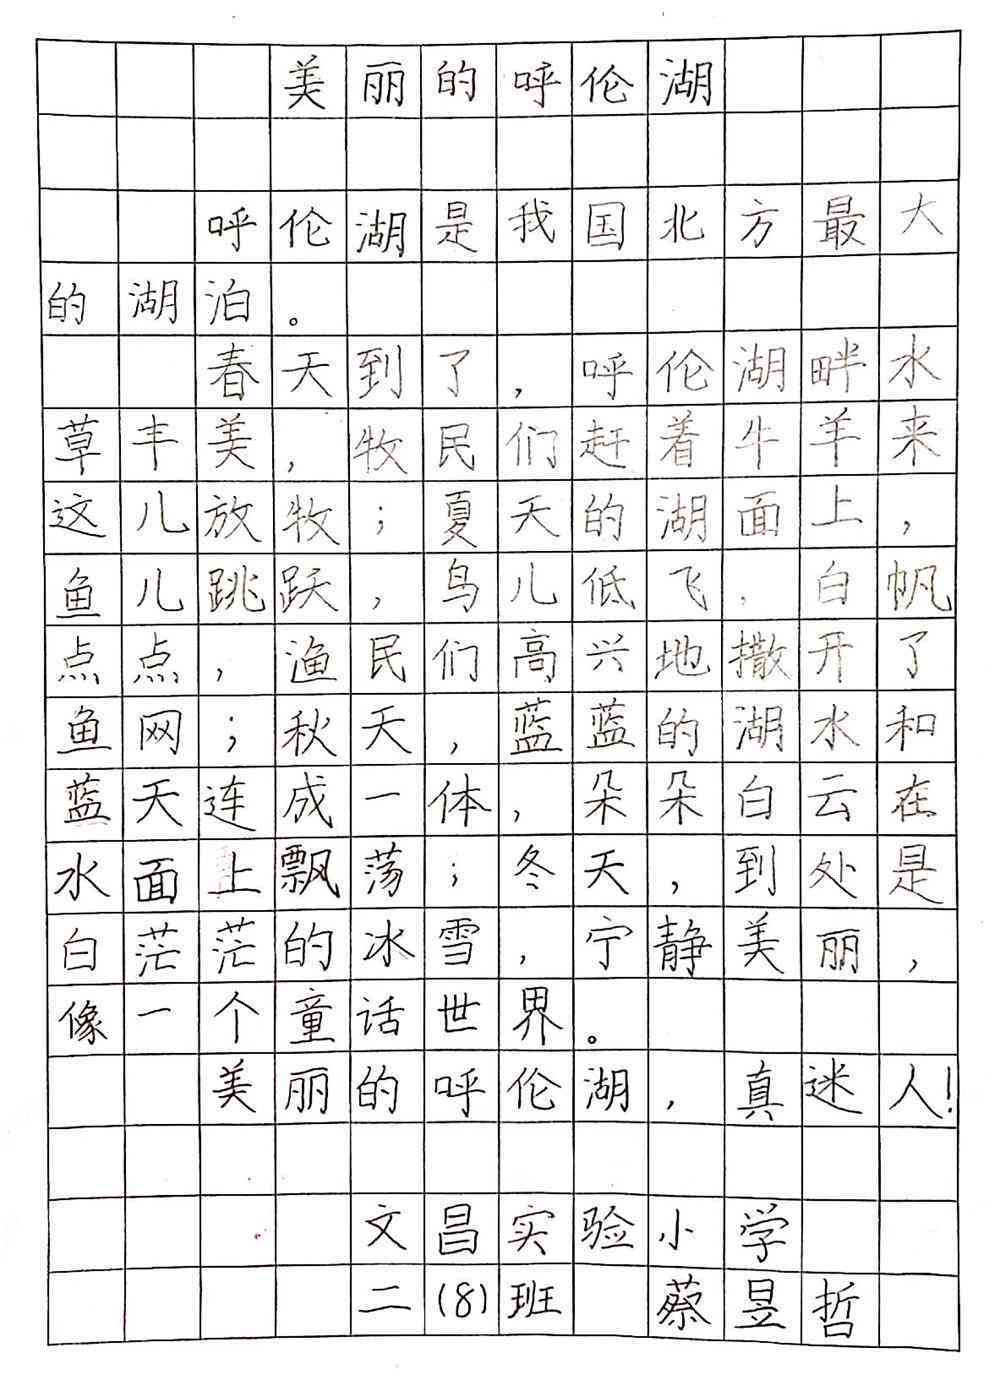 美丽的呼伦湖
呼伦湖是我国北方最大
的湖泊。
春天到了，呼伦湖畔水
草丰美，牧民们赶着牛羊来
这儿放牧；夏天的湖面上，
鱼儿跳跃，鸟儿低飞，白帆
点点，渔民们高兴地撒开了
鱼网；秋天，蓝蓝的湖水和
蓝天连成一体，朵朵白云在
水面上飘荡；冬天，到处是
白茫茫的冰雪，宁静美丽，
像一个童话世界。
美丽的呼伦湖，真迷人！
文昌实验小学
二(8)班 蔡昱哲